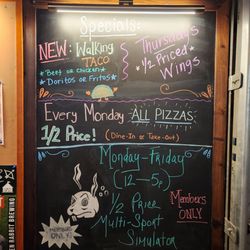 Specials:
NEW: Walking
TACO
*Beef or chicken*
*Doritos or Fritos*
Thursdays
1/2 Priced
Wings
Every Monday ALL PIZZAS
1/2 Price! (Dine-In or Take-Out)
Monday-Friday
(12-5p)
1/2 Price
Multi-Sport
Simulator
Members
ONLY
MEMBERS
ONLY
RABBIT BREWING